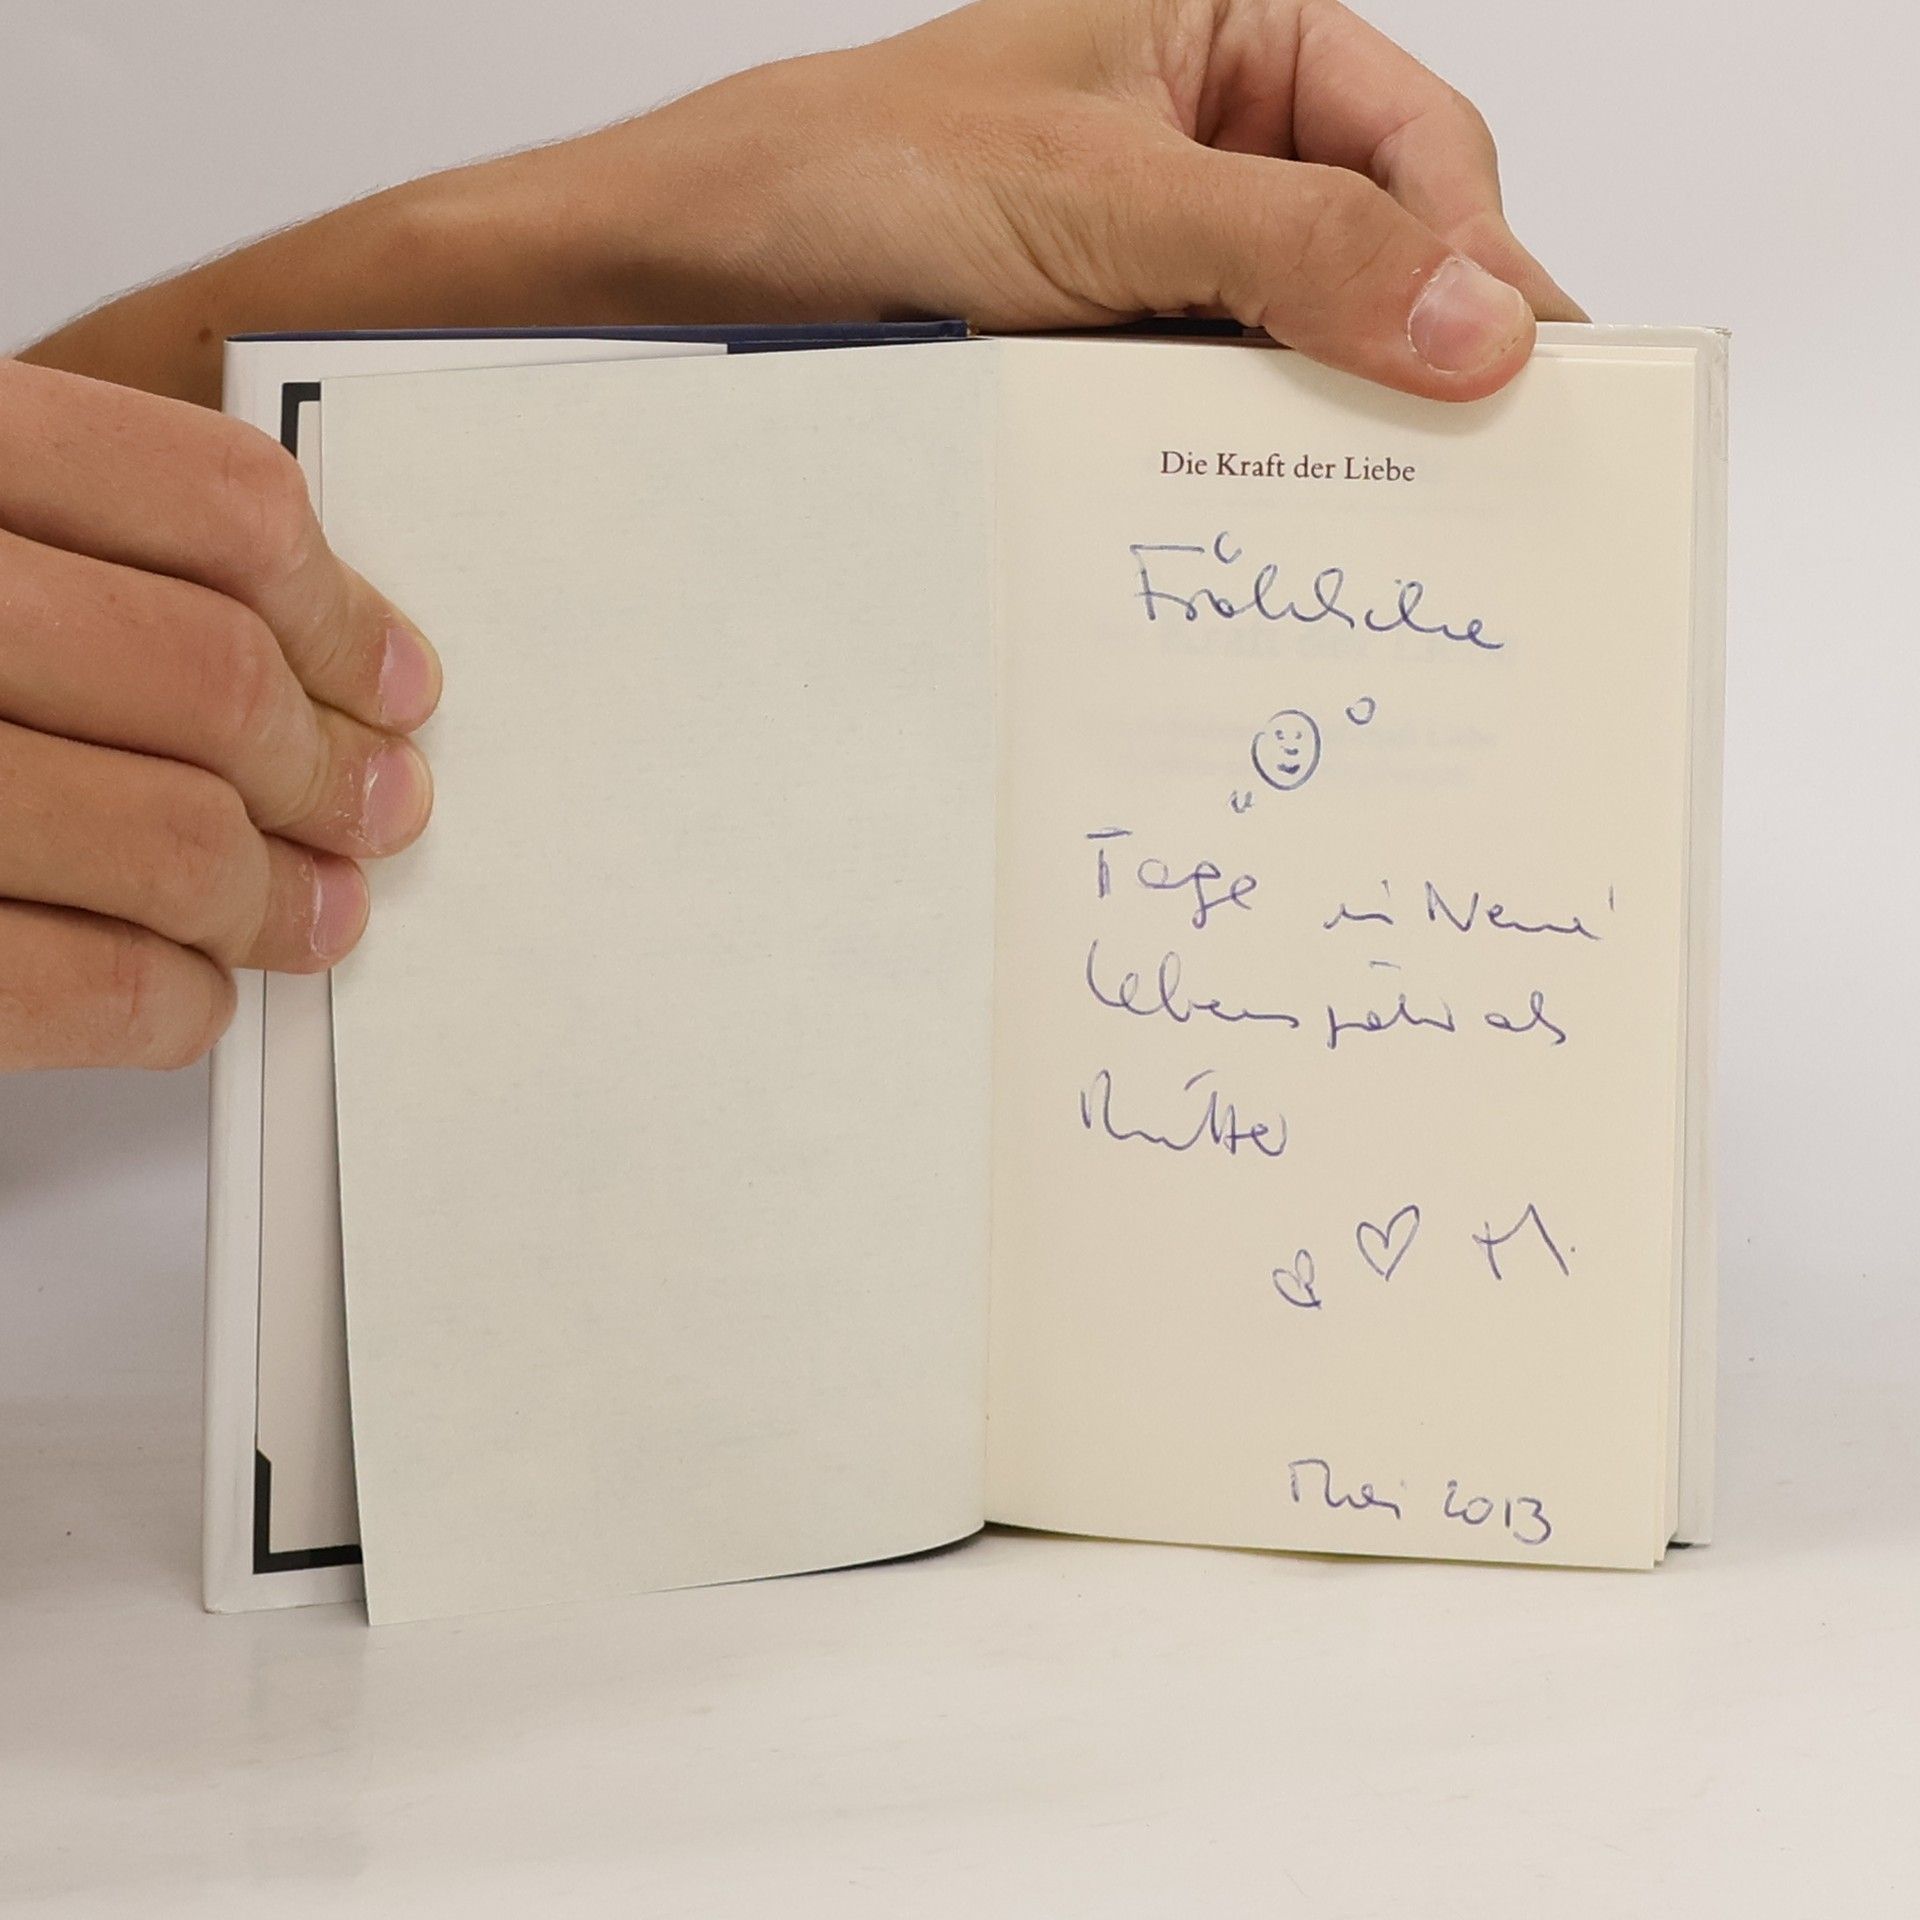 Die Kraft der Liebe
Fröhliche
Tage im Neuen
Lebensjahr als
Mutter
M.
Mai 2013